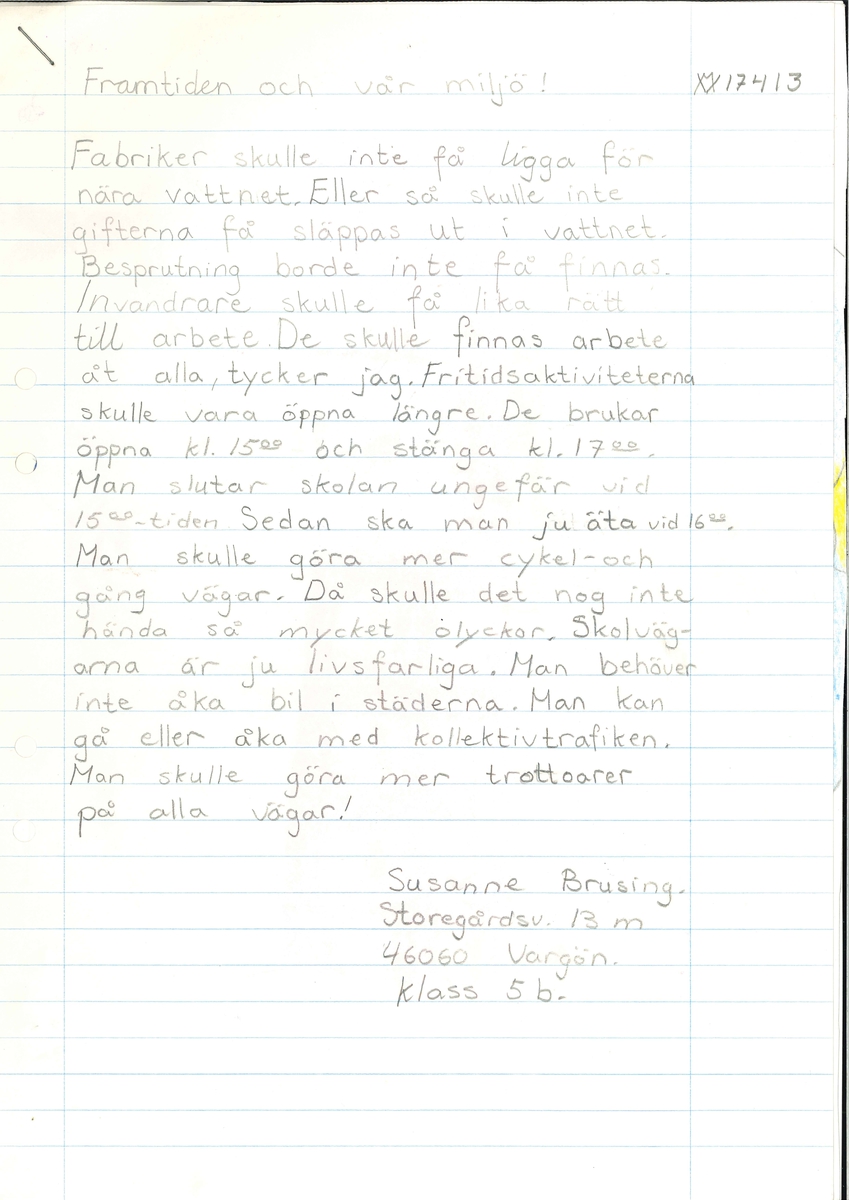 Framtiden och vår miljö! XX17413
Fabriker skulle inte få ligga för
nära vattnet. Eller så skulle inte
gifterna få släppas ut i vattnet.
Besprutning borde inte få finnas.
Invandrare skulle få lika rätt
till arbete. De skulle finnas arbete
åt alla, tycker jag. Fritidsaktiviteterna
skulle vara öppna längre. De brukar
öppna kl. 15⁰⁰ och stänga kl. 17⁰⁰.
Man slutar skolan ungefär vid
15⁰⁰-tiden Sedan ska man ju äta vid 16⁰⁰.
Man skulle göra mer cykel-och
gång vägar. Då skulle det nog inte
hända så mycket olyckor. Skolväg-
arna är ju livsfarliga. Man behöver
inte åka bil i städerna. Man kan
gå eller åka med kollektivtrafiken.
Man skulle göra mer trottoarer
på alla vägar!
Susanne Brusing.
Storegårdsv. 13 m
46060 Vargön.
klass 5 b.